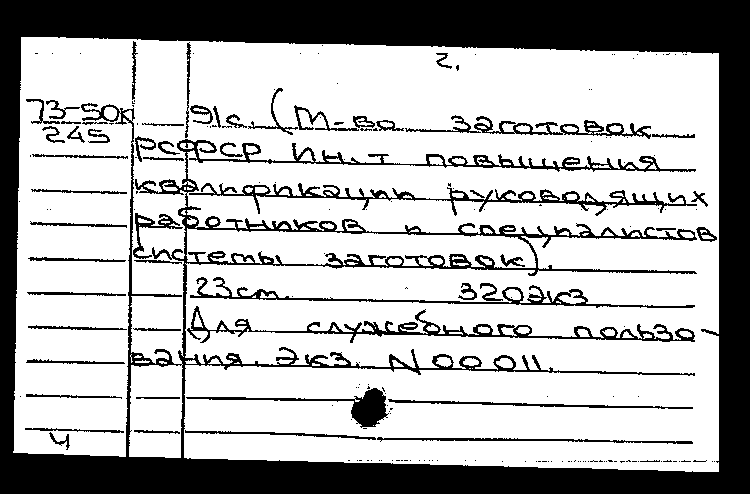 2.
73-50к 91с. (М-во заготовок
245
РСФСР. Ин-т повышения
квалификации руководящих
работников и специалистов
системы заготовок).
23см. 320экз
Для служебного пользо-
вания. Экз. N 00011.
ч